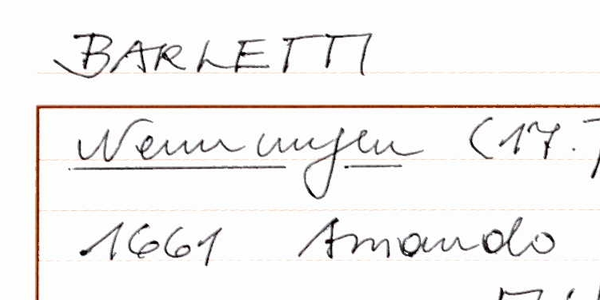 BARLETTI
Nennungen (17.
1661 Amando